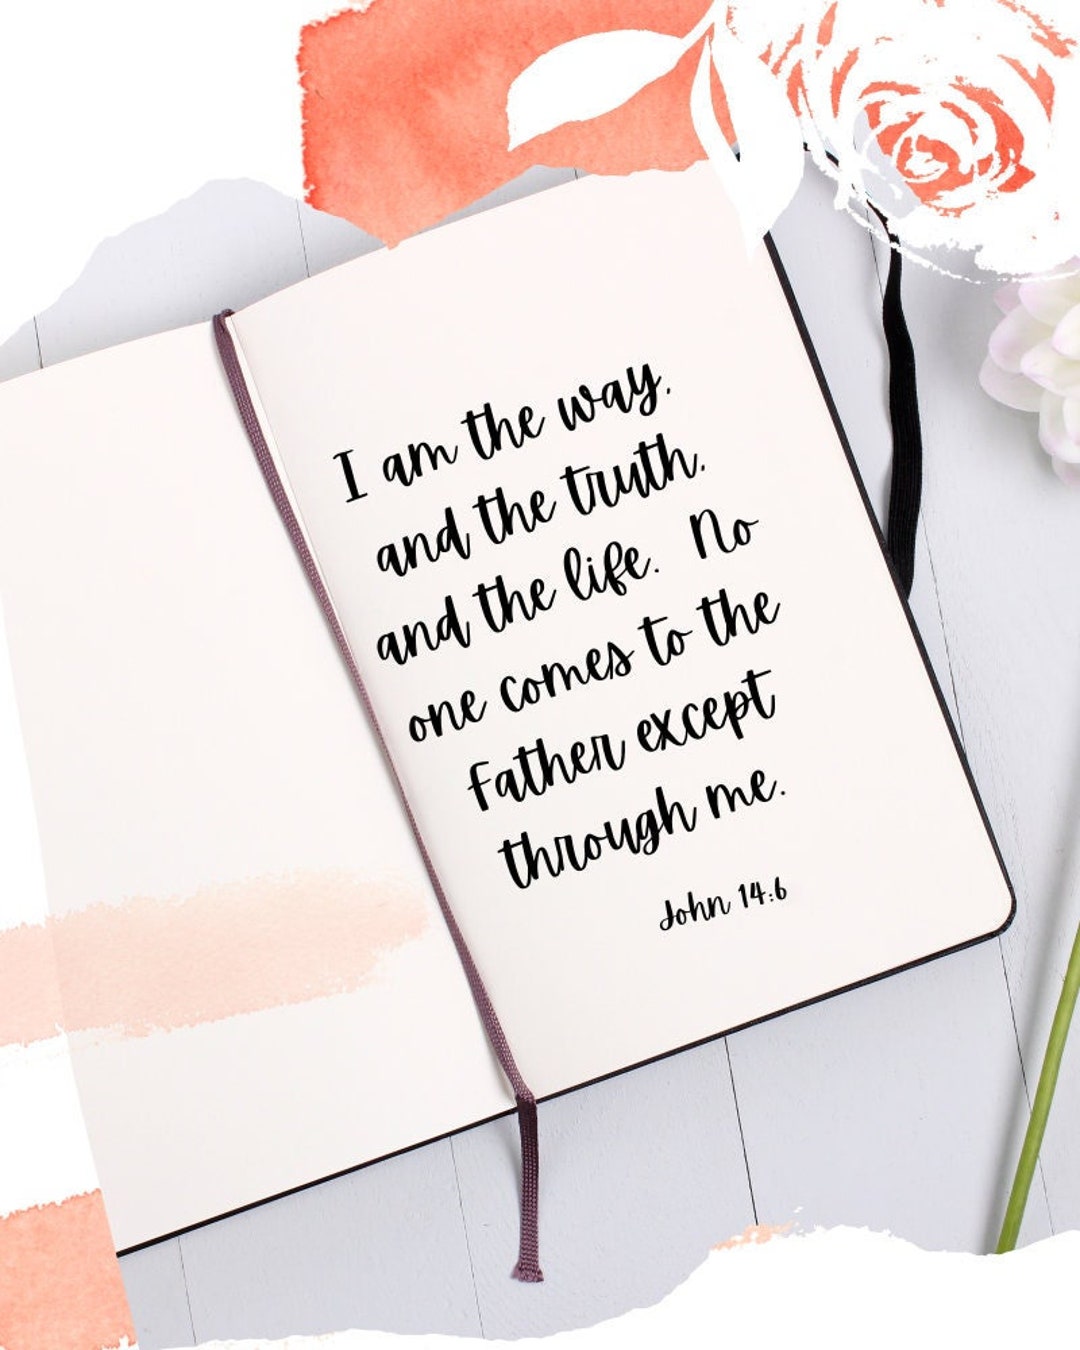 I am the way,
and the truth,
and the life.  No
one comes to the
Father except
through me.
John 14:6